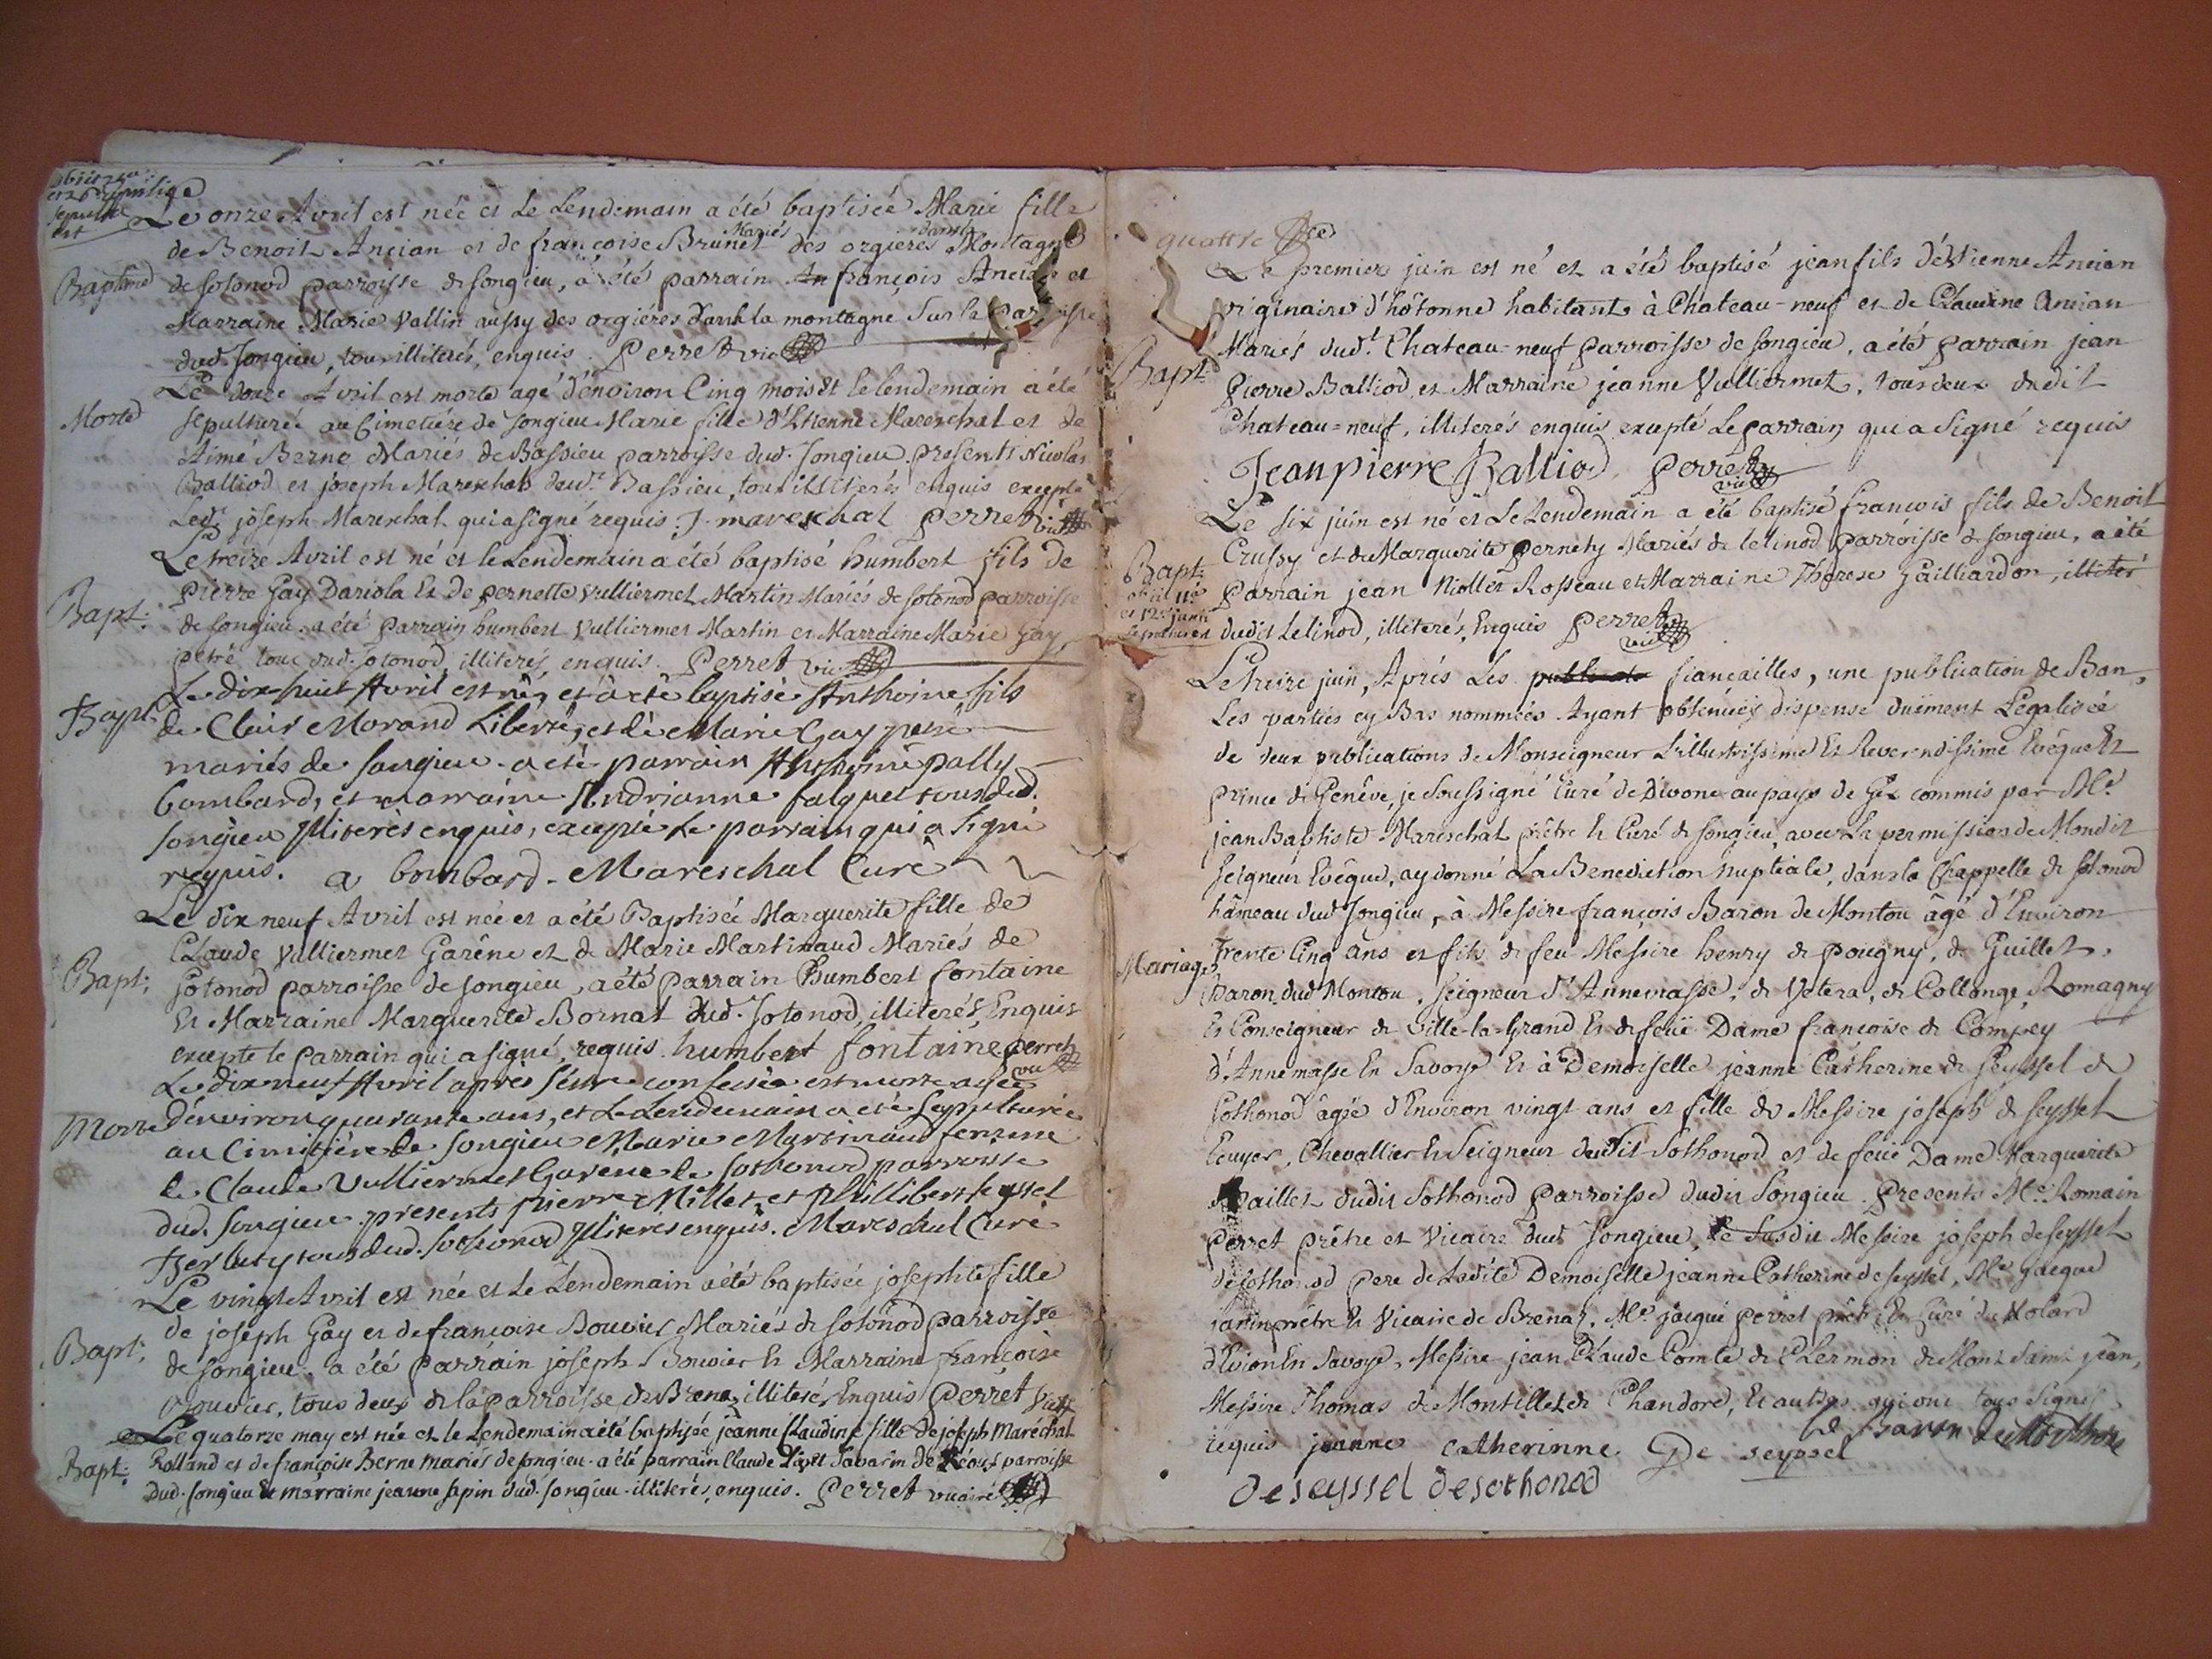 obiit 24a
et 26a ejusd.
sepulta
est
Le onze Avril est née et Le Lendemain a été baptiseé Marie fille
de Benoit Ancian et de françoise Brunet Mariés des orgieres dans Montagne
Baptême de sotonod parroisse de songieu, a été parrain françois Ancian et
Marraine Marie Vallin aussy des orgiéres dans la montagne Sur la parroisse
dud. songieu, tous illiterés, enquis. Perret vic
Le douze Avril est morte agé d'environ Cinq mois et le lendemain a été
Morte sepulturée au Cimetiére de songieu Marie fille d'Etienne Mareschal et de
Aimé Berne Mariés de Bassieu parroisse dud. songieu. presents Nicolas
Balliod et joseph Mareschal dud.t Bassieu, tous illiterés enquis excepté
Led.t joseph Mareschal qui a signé requis. J. mareschal Perret vic
Le treize Avril est né et le Lendemain a été baptisé humbert fils de
Bapt: pierre Gay Dariola Et De pernette Vulliermet Martin Mariés de sotonod parroisse
de songieu. a été parrain humbert Vulliermet Martin et Marraine Marie Gay,
petré tous dud. sotonod, illiterés, enquis. Perret vic.
Bapt: Le dix huit Avril est né, et a été baptisé Anthoine, fils
de Clair Morand Liberté, et de Marie Gay petré
mariés de songieu. a été parrain Anthoine pally
bombard, et marraine Andrianne falquet tous dud.
songieu Illiterés enquis, excepté le parrain qui a signé
requis. a bombard. Mareschal Curé
Le dix neuf Avril est née et a été Baptisée Marguerite fille de
Claude Vulliermet Garéne et de Marie Martinaud Mariés de
Bapt: Sotonod parroisse de songieu, a été parrain humbert fontaine
Et Marraine Marguerite Bornat dud. Sotonod, illiterés, Enquis
excepte le parrain qui a signé, requis. humbert fontaine perret vic
Le dix neuf Avril après s'être confessée est morte agée
Morte d'environ quarante ans, et Le Lendemain a été Sepulturée
au Cimitiére de songieu Marie Martinaud femme
de Claude Vulliermet Garene de sothonod parroisse
dud. songieu. presents pierre Millet et Phillibert seyssel
tous dud. sothonod Illiteres enquis. Mareschal Curé
Le vingt Avril est née et Le Lendemain a été baptisée josephte fille
de joseph Gay et de françoise Bouvier Mariés de sotonod parroisse
Bapt: de songieu. a été parrain joseph Bouvier Et Marraine françoise
Bouvier, tous deux de la parroisse de Brenaz illiterés, Enquis Perret vic
Le quatorze may est née et le Lendemain a été baptisée jeanne Claudine fille de joseph Maréchal
Bapt: Rolland et de françoise Berne mariés de songieu. a été parrain Claude Savarin de parroisse
dud. songieu Et marraine jeanne sapin dud. songieu. illiterés, enquis. Perret vicaire
quattre
Le premier juin est né et a été baptisé jean fils d'étienne Ancian
originaire d'hôtonne habitant à Chateau-neuf et de Claudine Ancian
Mariés dud.t Chateau-neuf parroisse de songieu, a été parrain jean
Bapt: pierre Balliod et Marraine jeanne Vulliermet, tous deux dudit
Chateau-neuf, illiterés enquis excepté Le parrain qui a Signé requis
Jean pierre Balliod. Perret vic
Le six juin est né et Le Lendemain a été baptisé françois fils de Benoit
Crussy et de Marguerite pernety Mariés de lelinod parroisse de songieu, a été
Bapt: parrain jean Niollet Rosseau et Marraine Therese Gailliardon, illiter
obiit 11a
et 12a junii
sepultus est
dudit Lelinod, illiterés, Enquis Perret vic
Le treize juin, Aprés Les fiançailles, une publication de Ban,
Les parties cy Bas nommées Ayant obtenües dispense duëment Légalisée
de deux publications de Monseigneur L'illustrissime Et Reverendissime Evêque Et
Prince de Genêve, je Soussigné Curé de Divone au pays de Gex commis par M.e
jean Baptiste Mareschal prêtre Et Curé de songieu, avec La permission de Mondit
Seigneur Evêque, ay donné La Benediction nuptiale, dans la Chappelle de sotonod
hâmeau dud. songieu, à Messire françois Baron de Montou âgé d'Environ
Mariage Trente Cinq ans et fils de feu Messire henry de pougny, de Guillet,
Baron dud Montou, seigneur d'Annemasse, de Vetera, de Collonge, Romagny
Et Conseigneur de Ville-la-Grand Et de feüe Dame françoise de Compey
d'Annemasse En Savoye Et à Demoiselle jeanne Catherine de Seyssel de
Sothonod âgée d'Environ vingt ans et fille de Messire joseph de seyssel
Ecuyer, Chevallier Et Seigneur dudit Sothonod et de feüe Dame Marguerite
paillet dudit Sothonod parroisse dudit Songieu. Presents M.e Romain
perret prêtre et Vicaire dud. songieu, Le Susdit Messire joseph de seyssel
de sothonod pere de Ladite Demoiselle jeanne Catherine de seyssel, M.e jacque
janin prêtre Et Vicaire de Brenaz, M.e jacque perret prêtre Et Curé du Nolard
d'Evion En Savoye, Messire jean Claude Comte de Clermon de Mont saint jean,
Messire Thomas de Montillet de Chandore, Et autres qui ont tous signés
requis jeanne catherinne De seyssel Le Baron de Monthou
de seyssel de sothonod